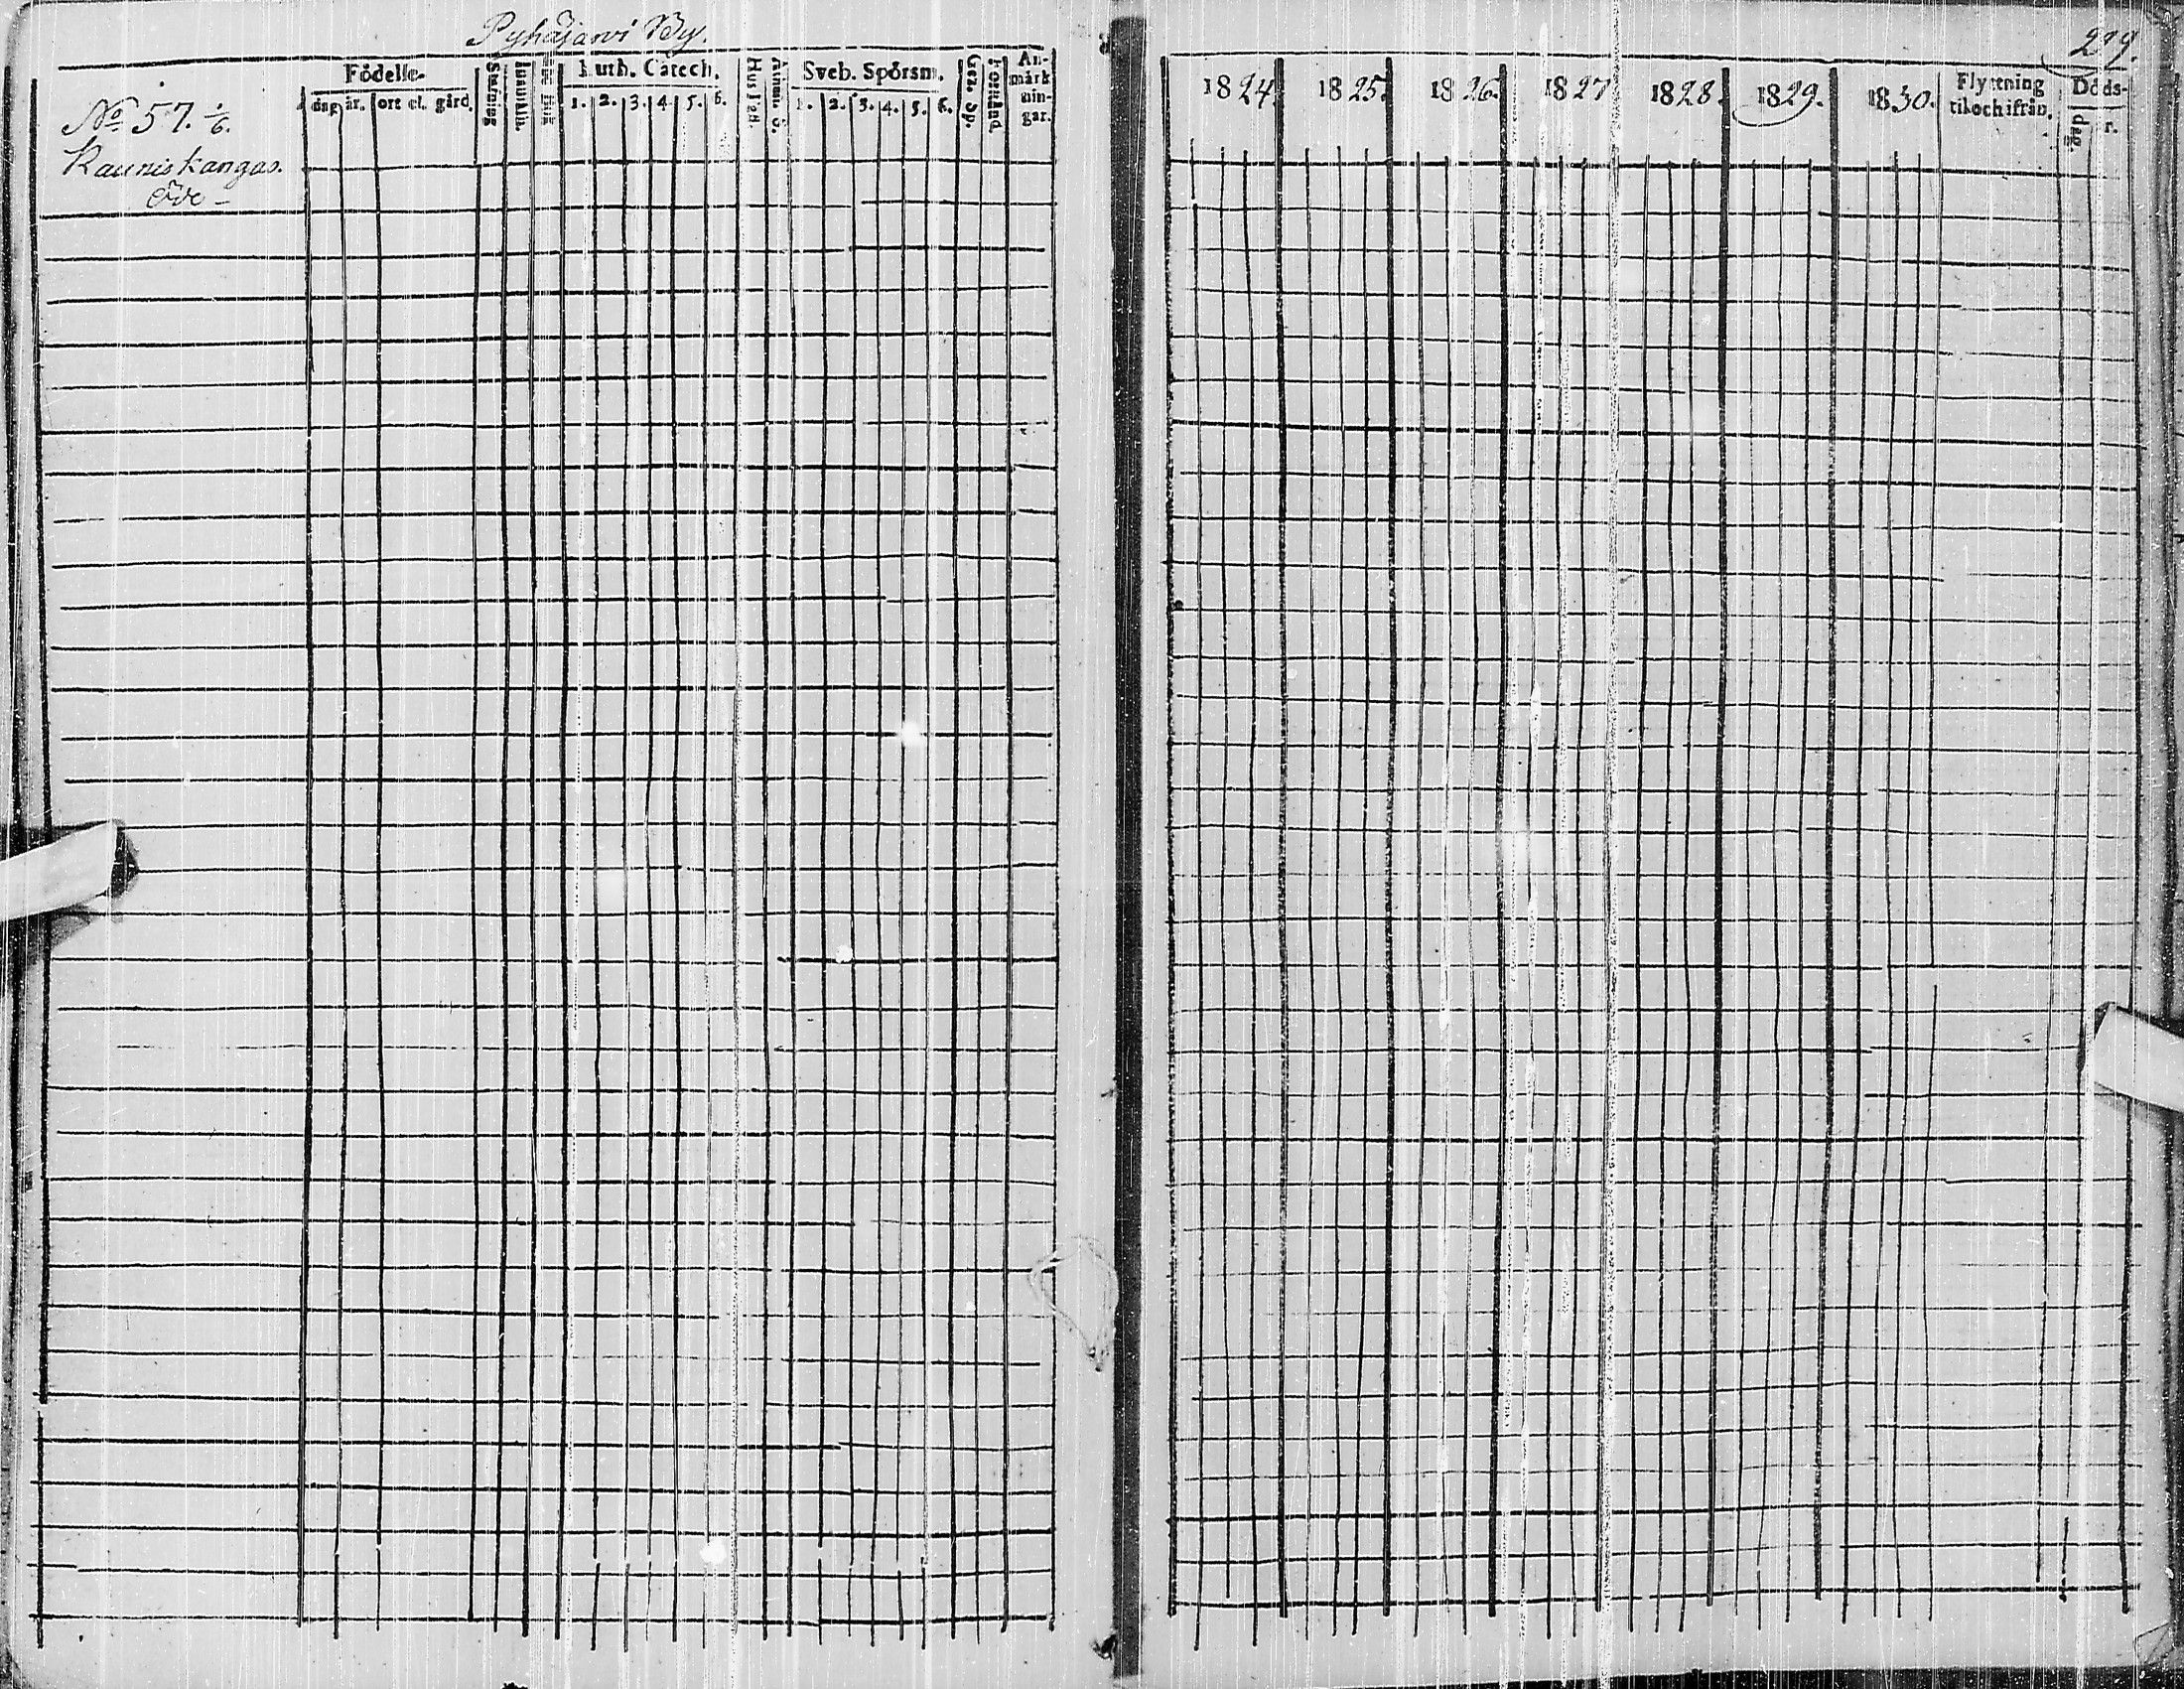 Pyhäjärvi By.
No 57. 1/6.
Kauniskangas.
Öde -
Födelse-
dag år. ort el. gård.
Stafning
Luth. Catech.
1. 2. 3. 4. 5. 6.
Sveb. Spörsm.
1. 2. 3. 4. 5. 6.
Ger. Sp.
Förstånd.
An-
märk
nin-
gar.
279.
1824. 1825. 1826. 1827 1828. 1829. 1830.
Flyttning
til och ifrån.
Döds-
dag.